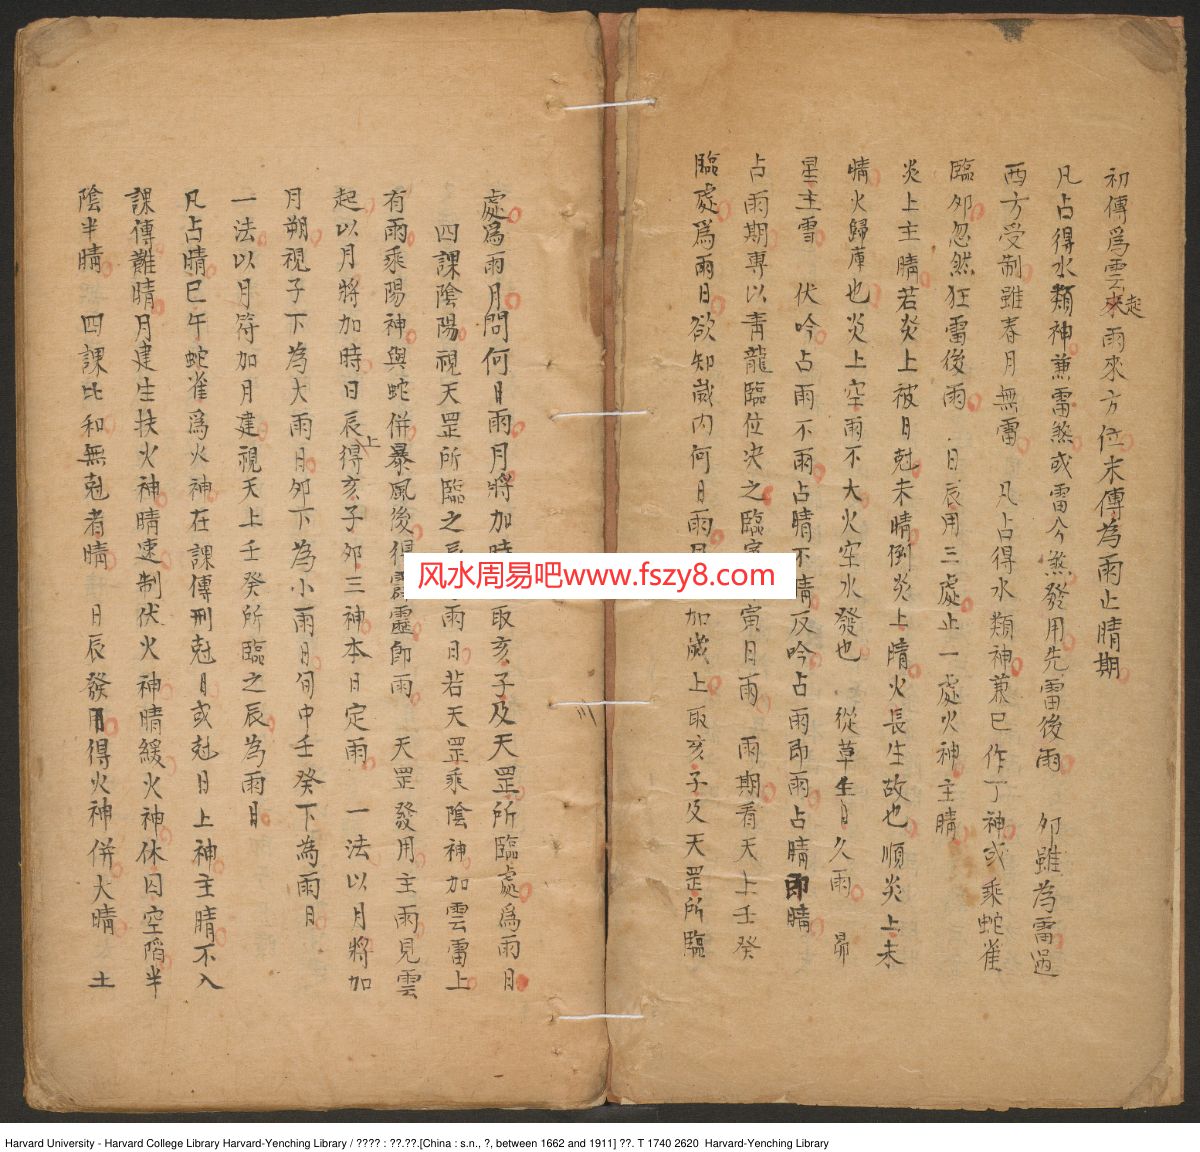 初傳為雲來起雨來方位末傳為雨止晴期
凡占得水類神兼雷煞或雷今煞發用先雷後雨 夘雖為雷遇
西方受制雖春月無雷 凡占得水類神兼巳作丁神或乘蛇雀
臨夘忽然狂雷後雨 日辰用三處止一處火神主晴
炎上主晴若炎上被日尅未晴倒炎上晴火長生故也順炎上未
晴火歸庫也炎上空雨不大火空水發也 從草生日久雨 昴
星主雪 伏吟占雨不雨占晴不晴反吟占雨即雨占晴即晴
占雨期專以青龍臨位決之臨寅 寅日雨 雨期看天上壬癸
臨處為雨日欲知嵗內何日雨 加嵗上取亥子及天罡所臨
處為雨月問何日雨月將加時 取亥子及天罡所臨處為雨日
四課陰陽視天罡所臨之辰 雨日若天罡乘陰神加雲雷上
有雨乘陽神與蛇併暴風後得霹靂即雨 天罡發用主雨見雲
起以月將加時日辰上得亥子夘三神本日定雨 一法以月將加
月朔視子下為大雨日夘下為小雨日旬中壬癸下為雨日
一法以月符加月建視天上壬癸所臨之辰為雨日
凡占晴巳午蛇雀為火神在課傳刑尅日或尅日上神主晴不入
課傳難晴月建生扶火神晴速制伏火神晴緩火神休囚空陷半
陰半晴 四課比和無尅者晴 日辰發用得火神併大晴 土
风水周易吧www.fszy8.com
Harvard University - Harvard College Library Harvard-Yenching Library / ???? : ??.??.[China : s.n., ?, between 1662 and 1911] ??. T 1740 2620 Harvard-Yenching Library